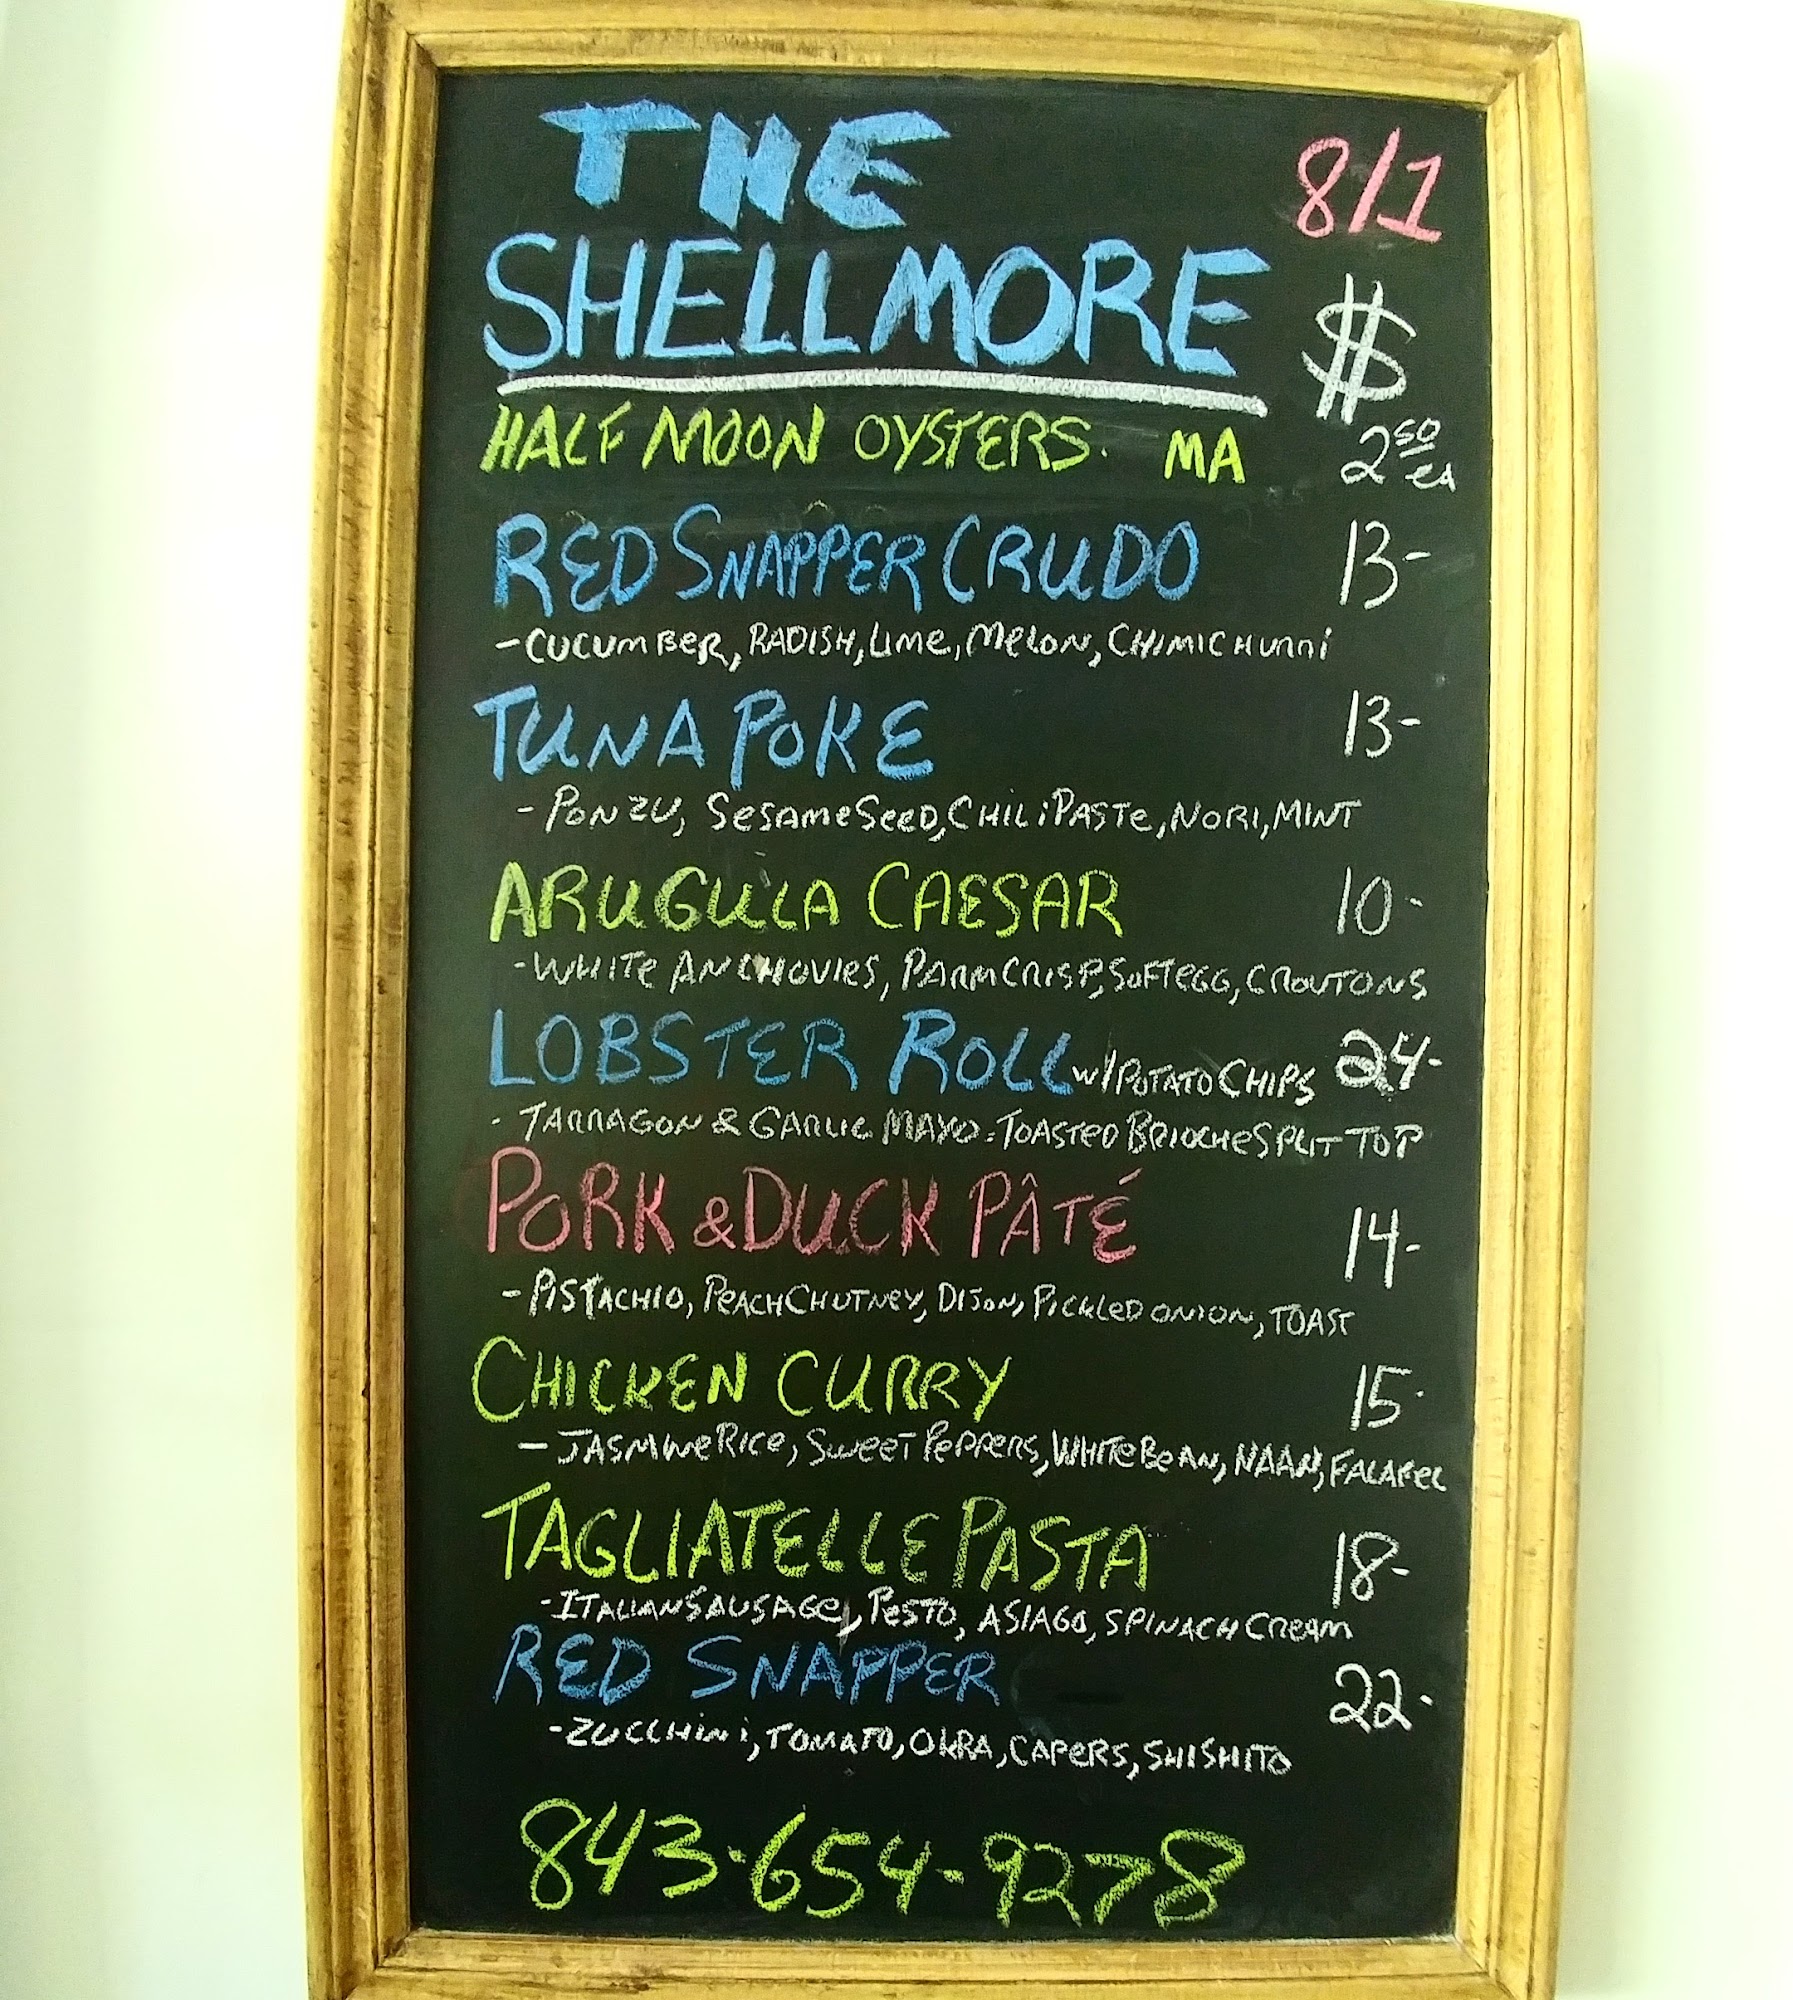 THE 8/1
SHELLMORE $
HALF MOON OYSTERS. MA 2 50 ea
RED SNAPPER CRUDO 13-
-CUCUMBER, RADISH, LIME, MELON, CHIMICHURRI
TUNA POKE 13-
- PONZU, SESAME SEED, CHILI PASTE, NORI, MINT
ARUGULA CAESAR 10-
-WHITE ANCHOVIES, PARM CRISP, SOFT EGG, CROUTONS
LOBSTER ROLL w/POTATO CHIPS 24-
- TARRAGON & GARLIC MAYO - TOASTED BRIOCHE SPLIT TOP
PORK & DUCK PÂTÉ 14-
- PISTACHIO, PEACH CHUTNEY, DIJON, PICKLED ONION, TOAST
CHICKEN CURRY 15-
- JASMINE RICE, SWEET PEPPERS, WHITE BEAN, NAAN, FALAFEL
TAGLIATELLE PASTA 18-
-ITALIAN SAUSAGE, PESTO, ASIAGO, SPINACH CREAM
RED SNAPPER 22-
-ZUCCHINI, TOMATO, OKRA, CAPERS, SHISHITO
843-654-9278